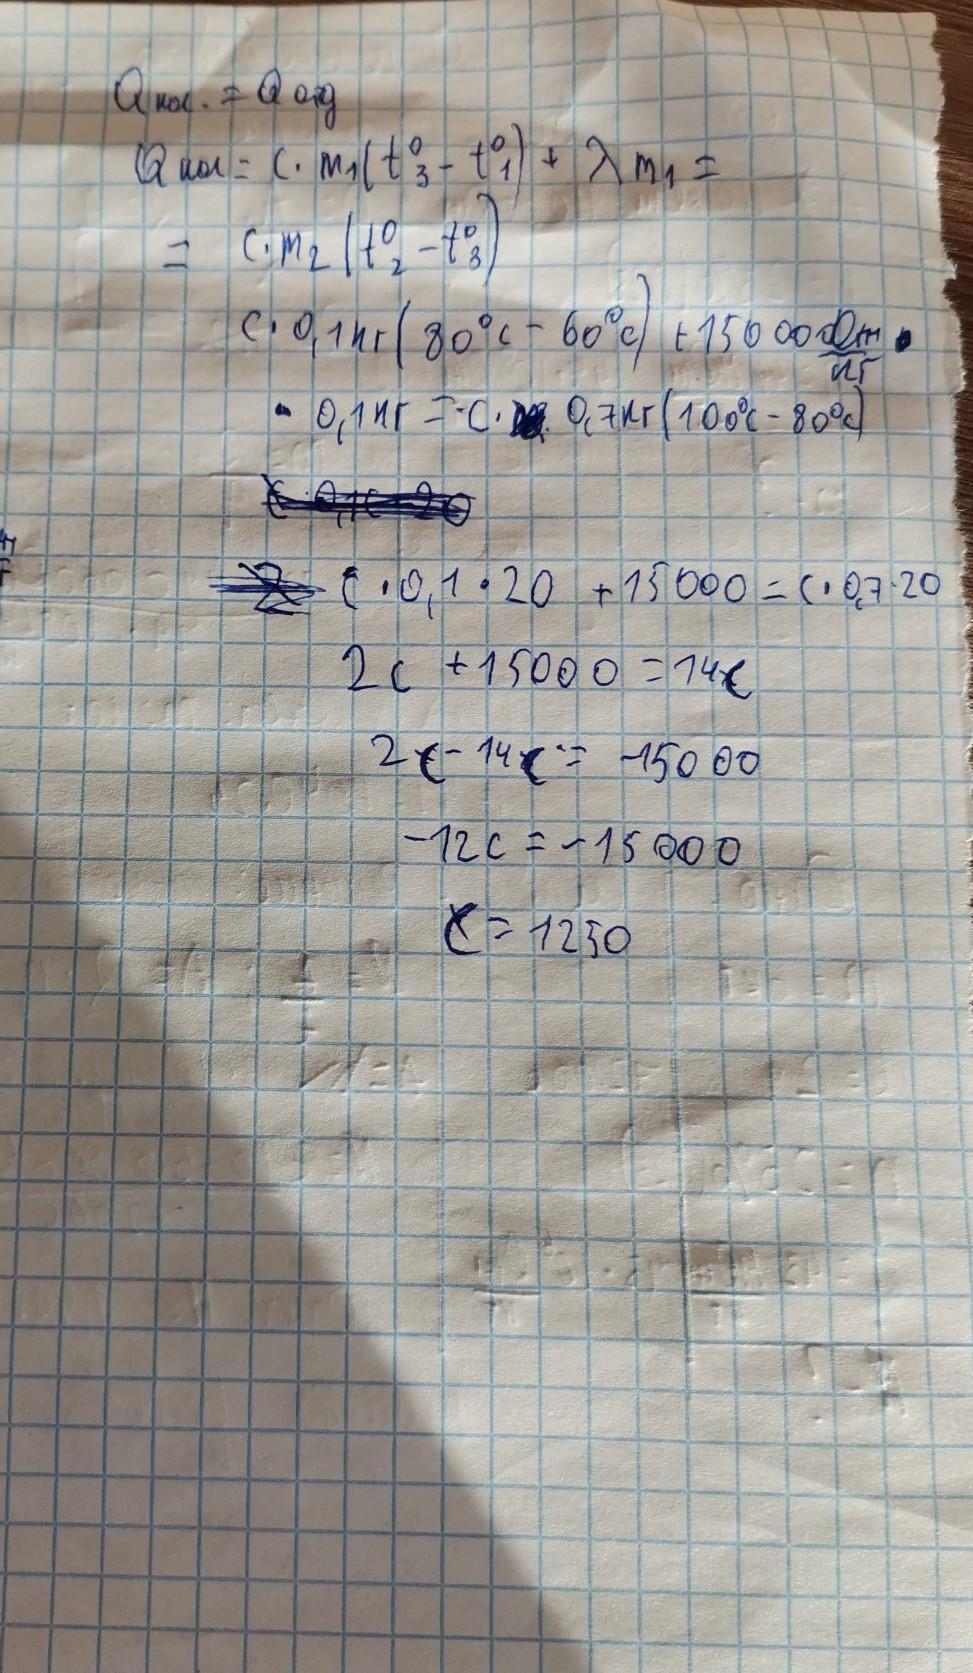 Qпол. = Qотд
Qпол = c · m₁(t°₃ - t°₁) + λ m₁ =
= c · m₂ (t°₂ - t°₃)
c · 0,1кг(80°c - 60°c) + 150000 Дж/кг ·
· 0,1кг = c · 0,7кг(100°c - 80°c)
c · 0,1 · 20 + 15000 = c · 0,7 · 20
2c + 15000 = 14c
2c - 14c = -15000
-12c = -15000
c = 1250